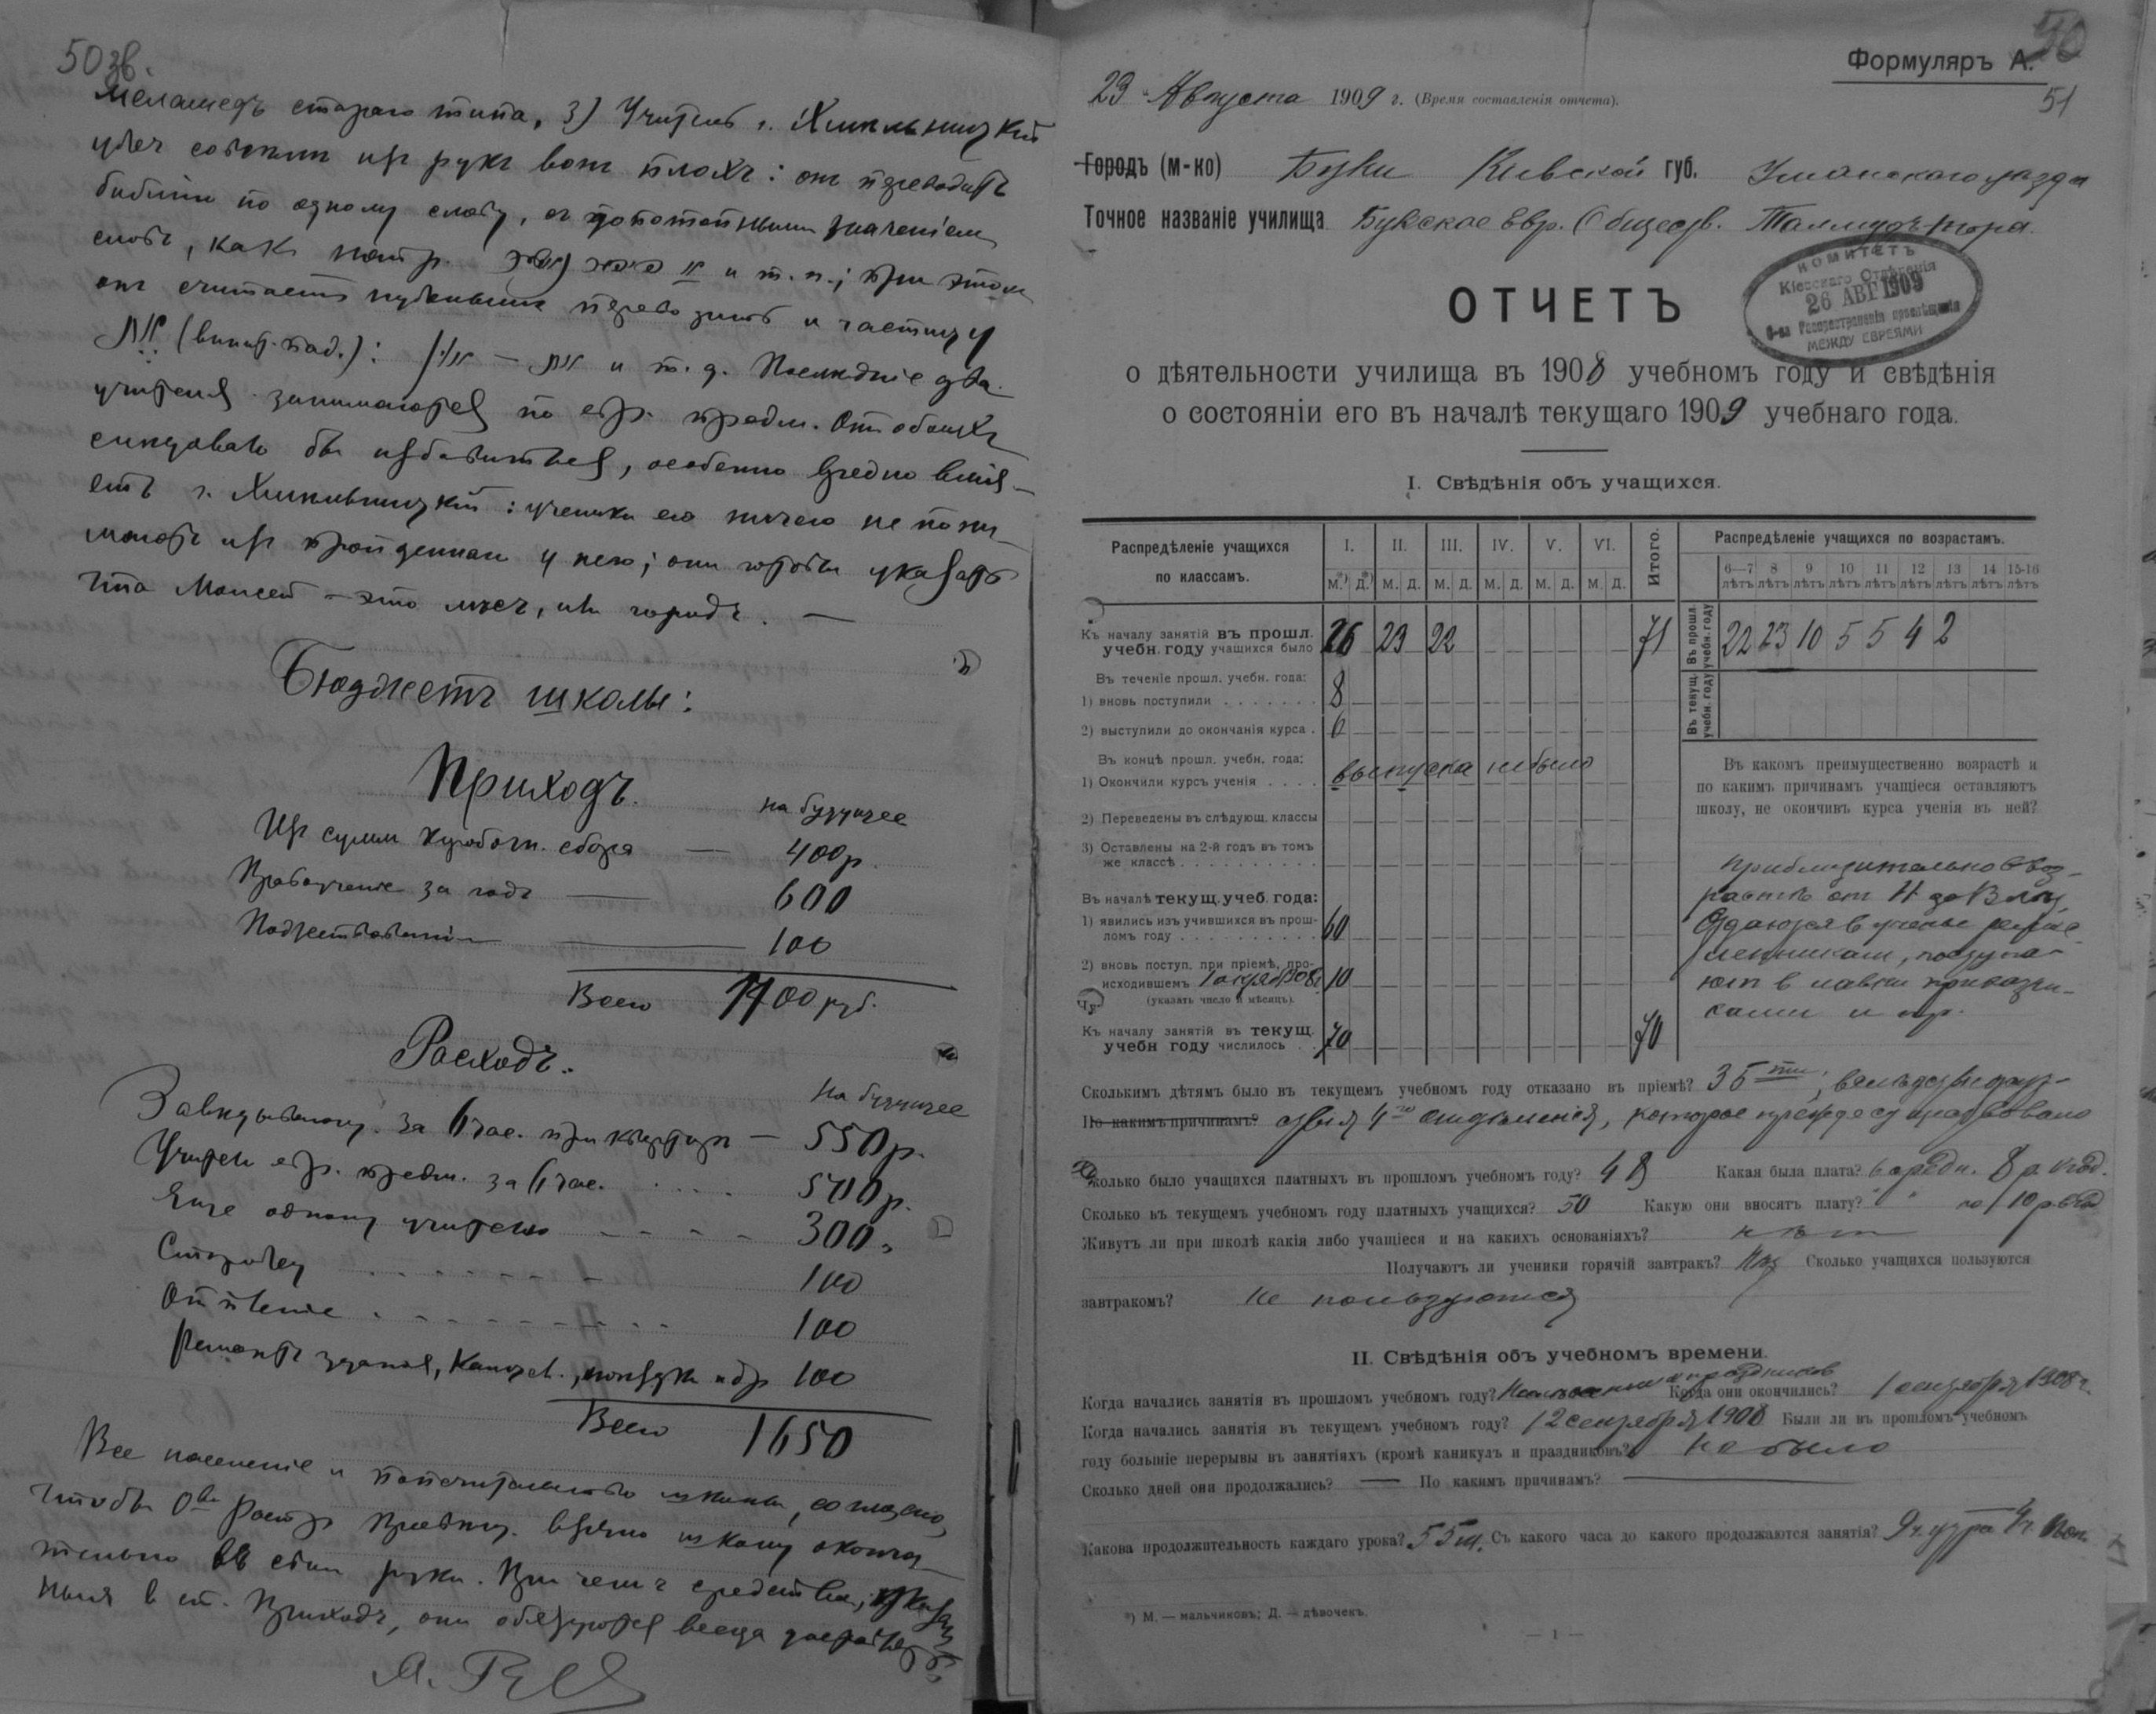 50 зв.
меламедъ стараго типа, 3) Учитель г. Хмельницкій
совсѣмъ изъ рукъ вонъ плохъ: онъ переводитъ
библію по одному слову, съ допотопнымъ значеніемъ
словъ, какъ напр. и т. п.; при этомъ
онъ считаетъ нужнымъ переводить и частицу
את (винит. пад.): את и т. д. Послѣдніе два
учителя занимаются по евр. предм. Отъ обоихъ
слѣдовало бы избавиться, особенно вредно влія-
етъ г. Хмельницкій: ученики его ничего не пони-
маютъ изъ пройденнаго у него; они готовы указать
что Моисей – это мѣс., или городъ. —
Бюджетъ школы:
Приходъ.
на будущее
Изъ суммъ коробочн. сбора — 400 р.
Правоученіе за годъ — 600
Пожертвованія — 100
Всего 1100 руб.
Расходъ.
на будущее
Завѣдывающ. за 6 час. при квартирѣ — 550 р.
Учителю евр. предм. за 6 час. . . . . 500 р.
Еще одному учителю - - - - 300 „
Сторожу . . . . . . 100
Отопленіе . . . . . . . 100
Ремонтъ зданія, Канцел., и др 100
Всего 1650
Все населеніе и попечительство школы, согласно,
чтобы О-во Распр. Просвѣщ. взяло школу оконча-
тельно въ свои руки. При чемъ средства, указан-
ныя въ ст. Приходъ, они обязуются всегда доставлять.
Формуляръ А.
50
51
23 Августа 1909 г. (Время составленія отчета).
Городъ (м-ко) Буки Кіевской губ. Уманскаго уѣзда
Точное названіе училища Букское Евр. Обществ. Талмудъ-тора.
КОМИТЕТЪ
Кіевскаго Отдѣленія
26 АВГ 1909
О-ва Распространенія просвѣщенія
МЕЖДУ ЕВРЕЯМИ
ОТЧЕТЪ
о дѣятельности училища въ 1908 учебномъ году и свѣдѣнія
о состояніи его въ началѣ текущаго 1909 учебнаго года.
I. Свѣдѣнія объ учащихся.
Распредѣленіе учащихся по классамъ. I. II. III. IV. V. VI. Итого.
М.*) Д.*) М. Д. М. Д. М. Д. М. Д. М. Д.
Распредѣленіе учащихся по возрастамъ.
6—7 лѣтъ 8 лѣтъ 9 лѣтъ 10 лѣтъ 11 лѣтъ 12 лѣтъ 13 лѣтъ 14 лѣтъ 15-16 лѣтъ
Къ началу занятій въ прошл. учебн. году учащихся было 26 23 22 71
Въ прошл. учебн. году 22 23 10 5 5 4 2
Въ текущ. учебн. году
Въ теченіе прошл. учебн. года:
1) вновь поступили . . . . . . . 8
2) выступили до окончанія курса . 6
Въ концѣ прошл. учебн. года:
1) Окончили курсъ ученія . . . . выпуска не было
2) Переведены въ слѣдующ. классы
3) Оставлены на 2-й годъ въ томъ
же классѣ . . . . . . . . . .
Въ началѣ текущ. учеб. года:
1) явились изъ учившихся въ прош-
ломъ году . . . . . . . . . . 60
2) вновь поступ. при пріемѣ, про-
исходившемъ 1 октября 1908 г. 10
(указать число и мѣсяцъ).
Къ началу занятій въ текущ.
учебн году числилось . . 70 70
Въ какомъ преимущественно возрастѣ и
по какимъ причинамъ учащіеся оставляютъ
школу, не окончивъ курса ученія въ ней?
Приблизительно въ воз-
растѣ отъ 11 до 13 лѣтъ
Отдаются въ ученье ремес-
ленникамъ, поступа-
ютъ в лавки приказчи-
ками и пр.
Сколькимъ дѣтямъ было въ текущемъ учебномъ году отказано въ пріемѣ? 35-ти, вслѣдствіе закр-
По какимъ причинамъ? 4-го отдѣленія, которое прежде существовало
Сколько было учащихся платныхъ въ прошломъ учебномъ году? 48 Какая была плата? въ средн. 8 р. в год.
Сколько въ текущемъ учебномъ году платныхъ учащихся? 50 Какую они вносятъ плату? " " по 10 р. в год
Живутъ ли при школѣ какія либо учащіеся и на какихъ основаніяхъ? нѣт
Получаютъ ли ученики горячій завтракъ? Нѣт Сколько учащихся пользуются
завтракомъ? Не пользуются
II. Свѣдѣнія объ учебномъ времени.
Когда начались занятія въ прошломъ учебномъ году? праздниковъ Когда они окончились? 1 сентября 1908 г.
Когда начались занятія въ текущемъ учебномъ году? 12 сентября 1908 Были ли въ прошломъ учебномъ
году большіе перерывы въ занятіяхъ (кромѣ каникулъ и праздниковъ? Не было
Сколько дней они продолжались? — По какимъ причинамъ? —
Какова продолжительность каждаго урока? 55 м. Съ какого часа до какого продолжаются занятія? 9 ч. утра 4 ч. поп.
*) М. — мальчиковъ; Д. — дѣвочекъ.
— 1 —